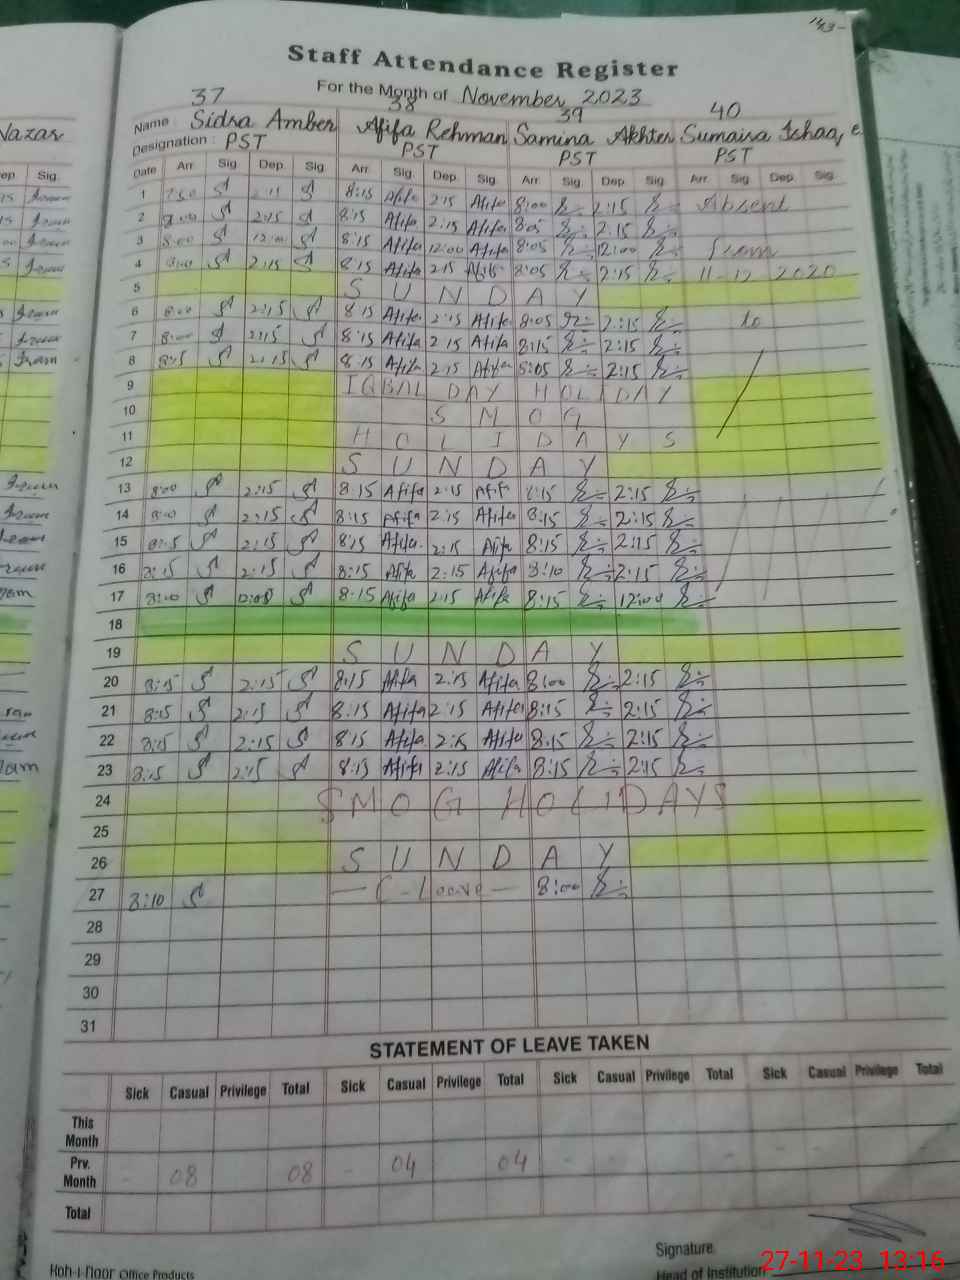 Staff Attendance Register
For the Month of November 2023
37 38 39 40
Name : Sidra Amber Afifa Rehman Samina Akhter Sumaira Ishaq
Designation : PST PST PST PST
Date Arr. Sig. Dep. Sig. Arr. Sig. Dep. Sig. Arr. Sig. Dep. Sig. Arr. Sig. Dep. Sig.
1 7:50 2:15 8:15 Afifa 2:15 Afifa 8:00 2:15 Absent
2 8:00 2:15 8:15 Afifa 2:15 Afifa 8:05 2:15
3 8:00 12:00 8:15 Afifa 12:00 Afifa 8:05 12:00 From
4 8:00 2:15 8:15 Afifa 2:15 Afifa 8:05 2:15 2020
5 SUNDAY
6 8:00 2:15 8:15 Afifa 2:15 Afifa 8:05 2:15 to
7 8:00 2:15 8:15 Afifa 2:15 Afifa 8:15 2:15
8 2:15 8:15 Afifa 2:15 Afifa 8:05 2:15
9 IQBAL DAY HOLIDAY
10 SMOG
11 HOLIDAYS
12 SUNDAY
13 8:00 2:15 8:15 Afifa 2:15 Afif 8:15 2:15
14 8:00 2:15 8:15 Afifa 2:15 Afifa 8:15 2:15
15 8:15 2:15 8:15 Afifa 2:15 Afifa 8:15 2:15
16 8:15 2:15 8:15 Afifa 2:15 Afifa 8:10 2:15
17 8:00 8:15 Afifa 2:15 Afifa 8:15 12:00
18
19 SUNDAY
20 8:15 2:15 8:15 Afifa 2:15 Afifa 8:00 2:15
21 8:15 2:15 8:15 Afifa 2:15 Afifa 8:15 2:15
22 8:15 2:15 8:15 Afifa 2:15 Afifa 8:15 2:15
23 8:15 2:15 8:15 Afifa 2:15 Afifa 8:15 2:15
24 SMOG HOLIDAYS
25
26 SUNDAY
27 8:10 — C-Leave — 8:00
28
29
30
31
STATEMENT OF LEAVE TAKEN
Sick Casual Privilege Total Sick Casual Privilege Total Sick Casual Privilege Total Sick Casual Privilege Total
This Month
Prv. Month - 08 08 - 04 04 - - - - -
Total
Signature
Koh-i-Noor Office Products Head of Institution
27-11-23 13:16